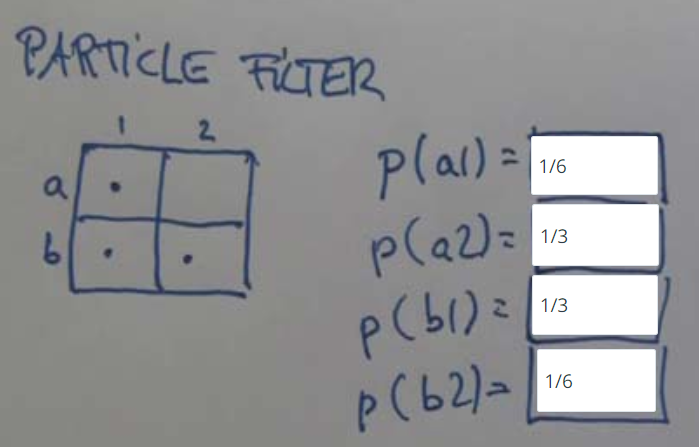 PARTICLE FILTER
1 2
a
b
p(a1) = 1/6
p(a2) = 1/3
p(b1) = 1/3
p(b2) = 1/6